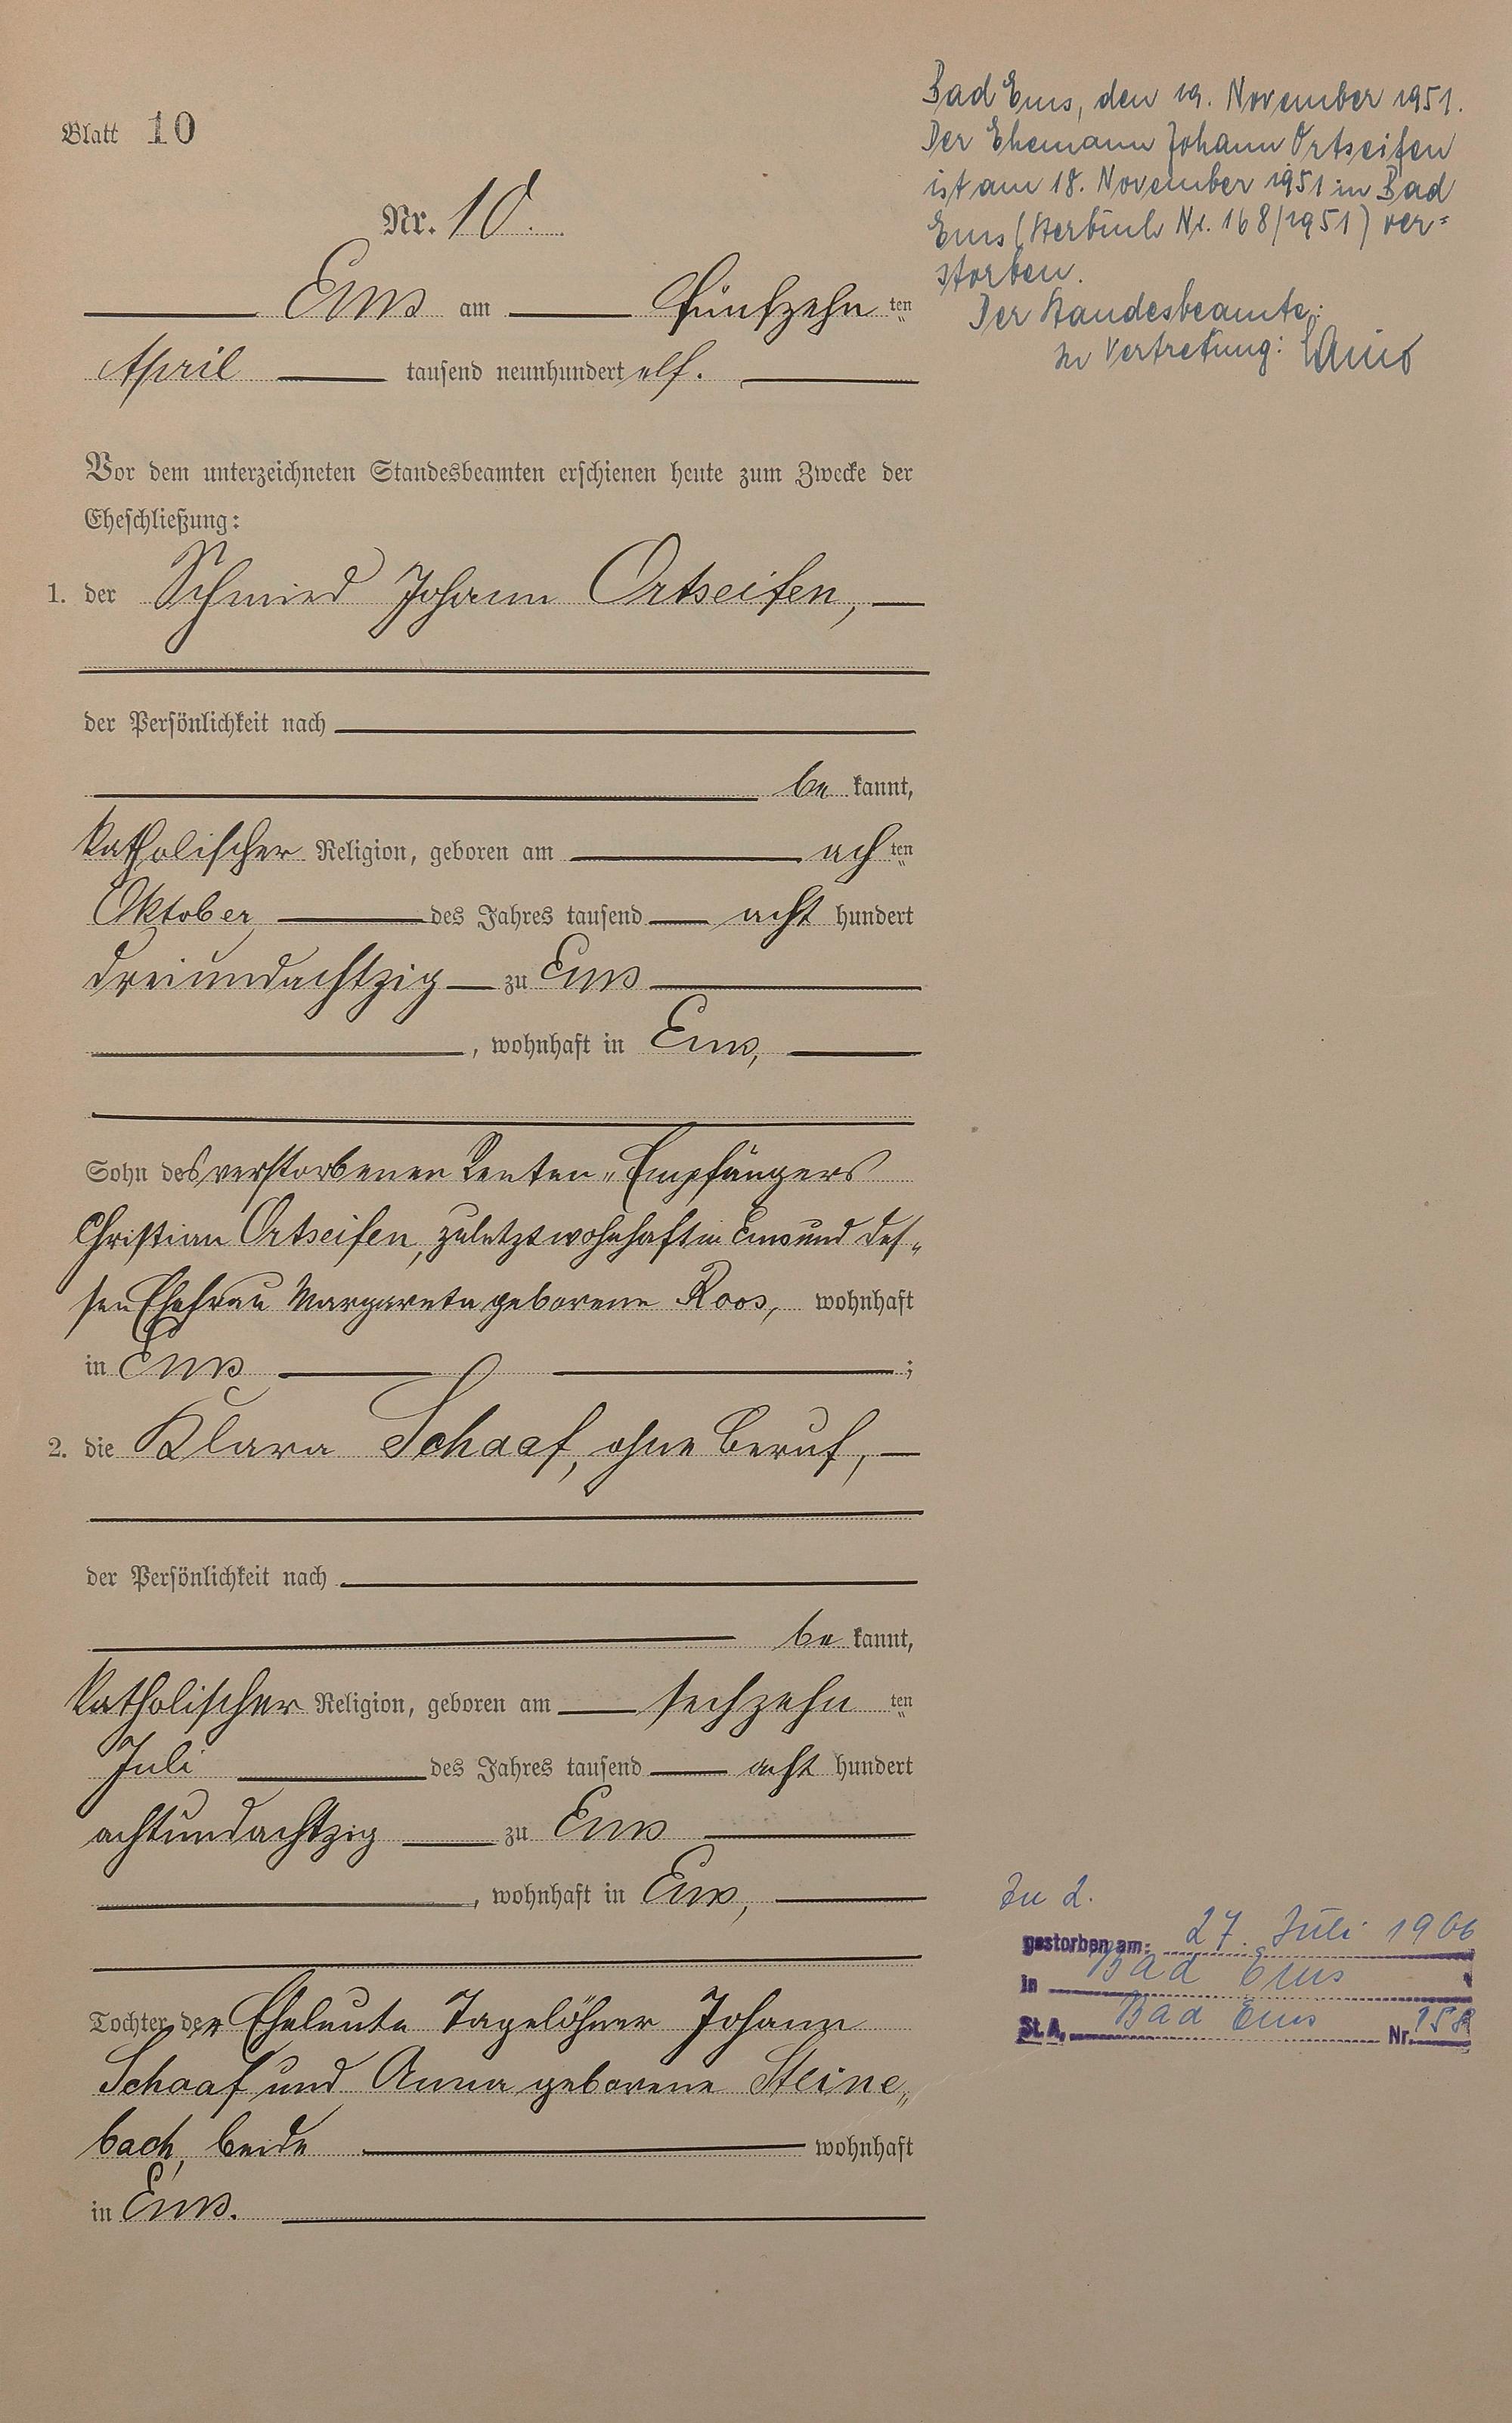 Blatt 10
Nr. 10.
Ems am fünfzehn ten
April tausend neunhundert elf.
Vor dem unterzeichneten Standesbeamten erschienen heute zum Zwecke der
Eheschließung:
1. der Schmied Johann Ortseifen,
der Persönlichkeit nach
be kannt,
katholischer Religion, geboren am ach ten
Oktober des Jahres tausend acht hundert
dreiundachtzig zu Ems
, wohnhaft in Ems,
Sohn des verstorbenen Renten-Empfängers
Christian Ortseifen, zuletzt wohnhaft in Ems und des-
sen Ehefrau Margareta geborene Roos, wohnhaft
in Ems ;
2. die Klara Schaaf, ohne Beruf,
der Persönlichkeit nach
be kannt,
katholischer Religion, geboren am sechzehn ten
Juli des Jahres tausend acht hundert
achtundachtzig zu Ems
, wohnhaft in Ems,
Tochter der Eheleute Tagelöhner Johann
Schaaf und Anna geborene Steine-
bach, beide wohnhaft
in Ems.
Bad Ems, den 19. November 1951.
Der Ehemann Johann Ortseifen
ist am 18. November 1951 in Bad
Ems (Sterbuch Nr. 168/1951) ver-
storben.
Der Standesbeamte:
In Vertretung:
Zu 2.
gestorben am: 27. Juli
in Bad Ems
St. A. Bad Ems Nr. 158